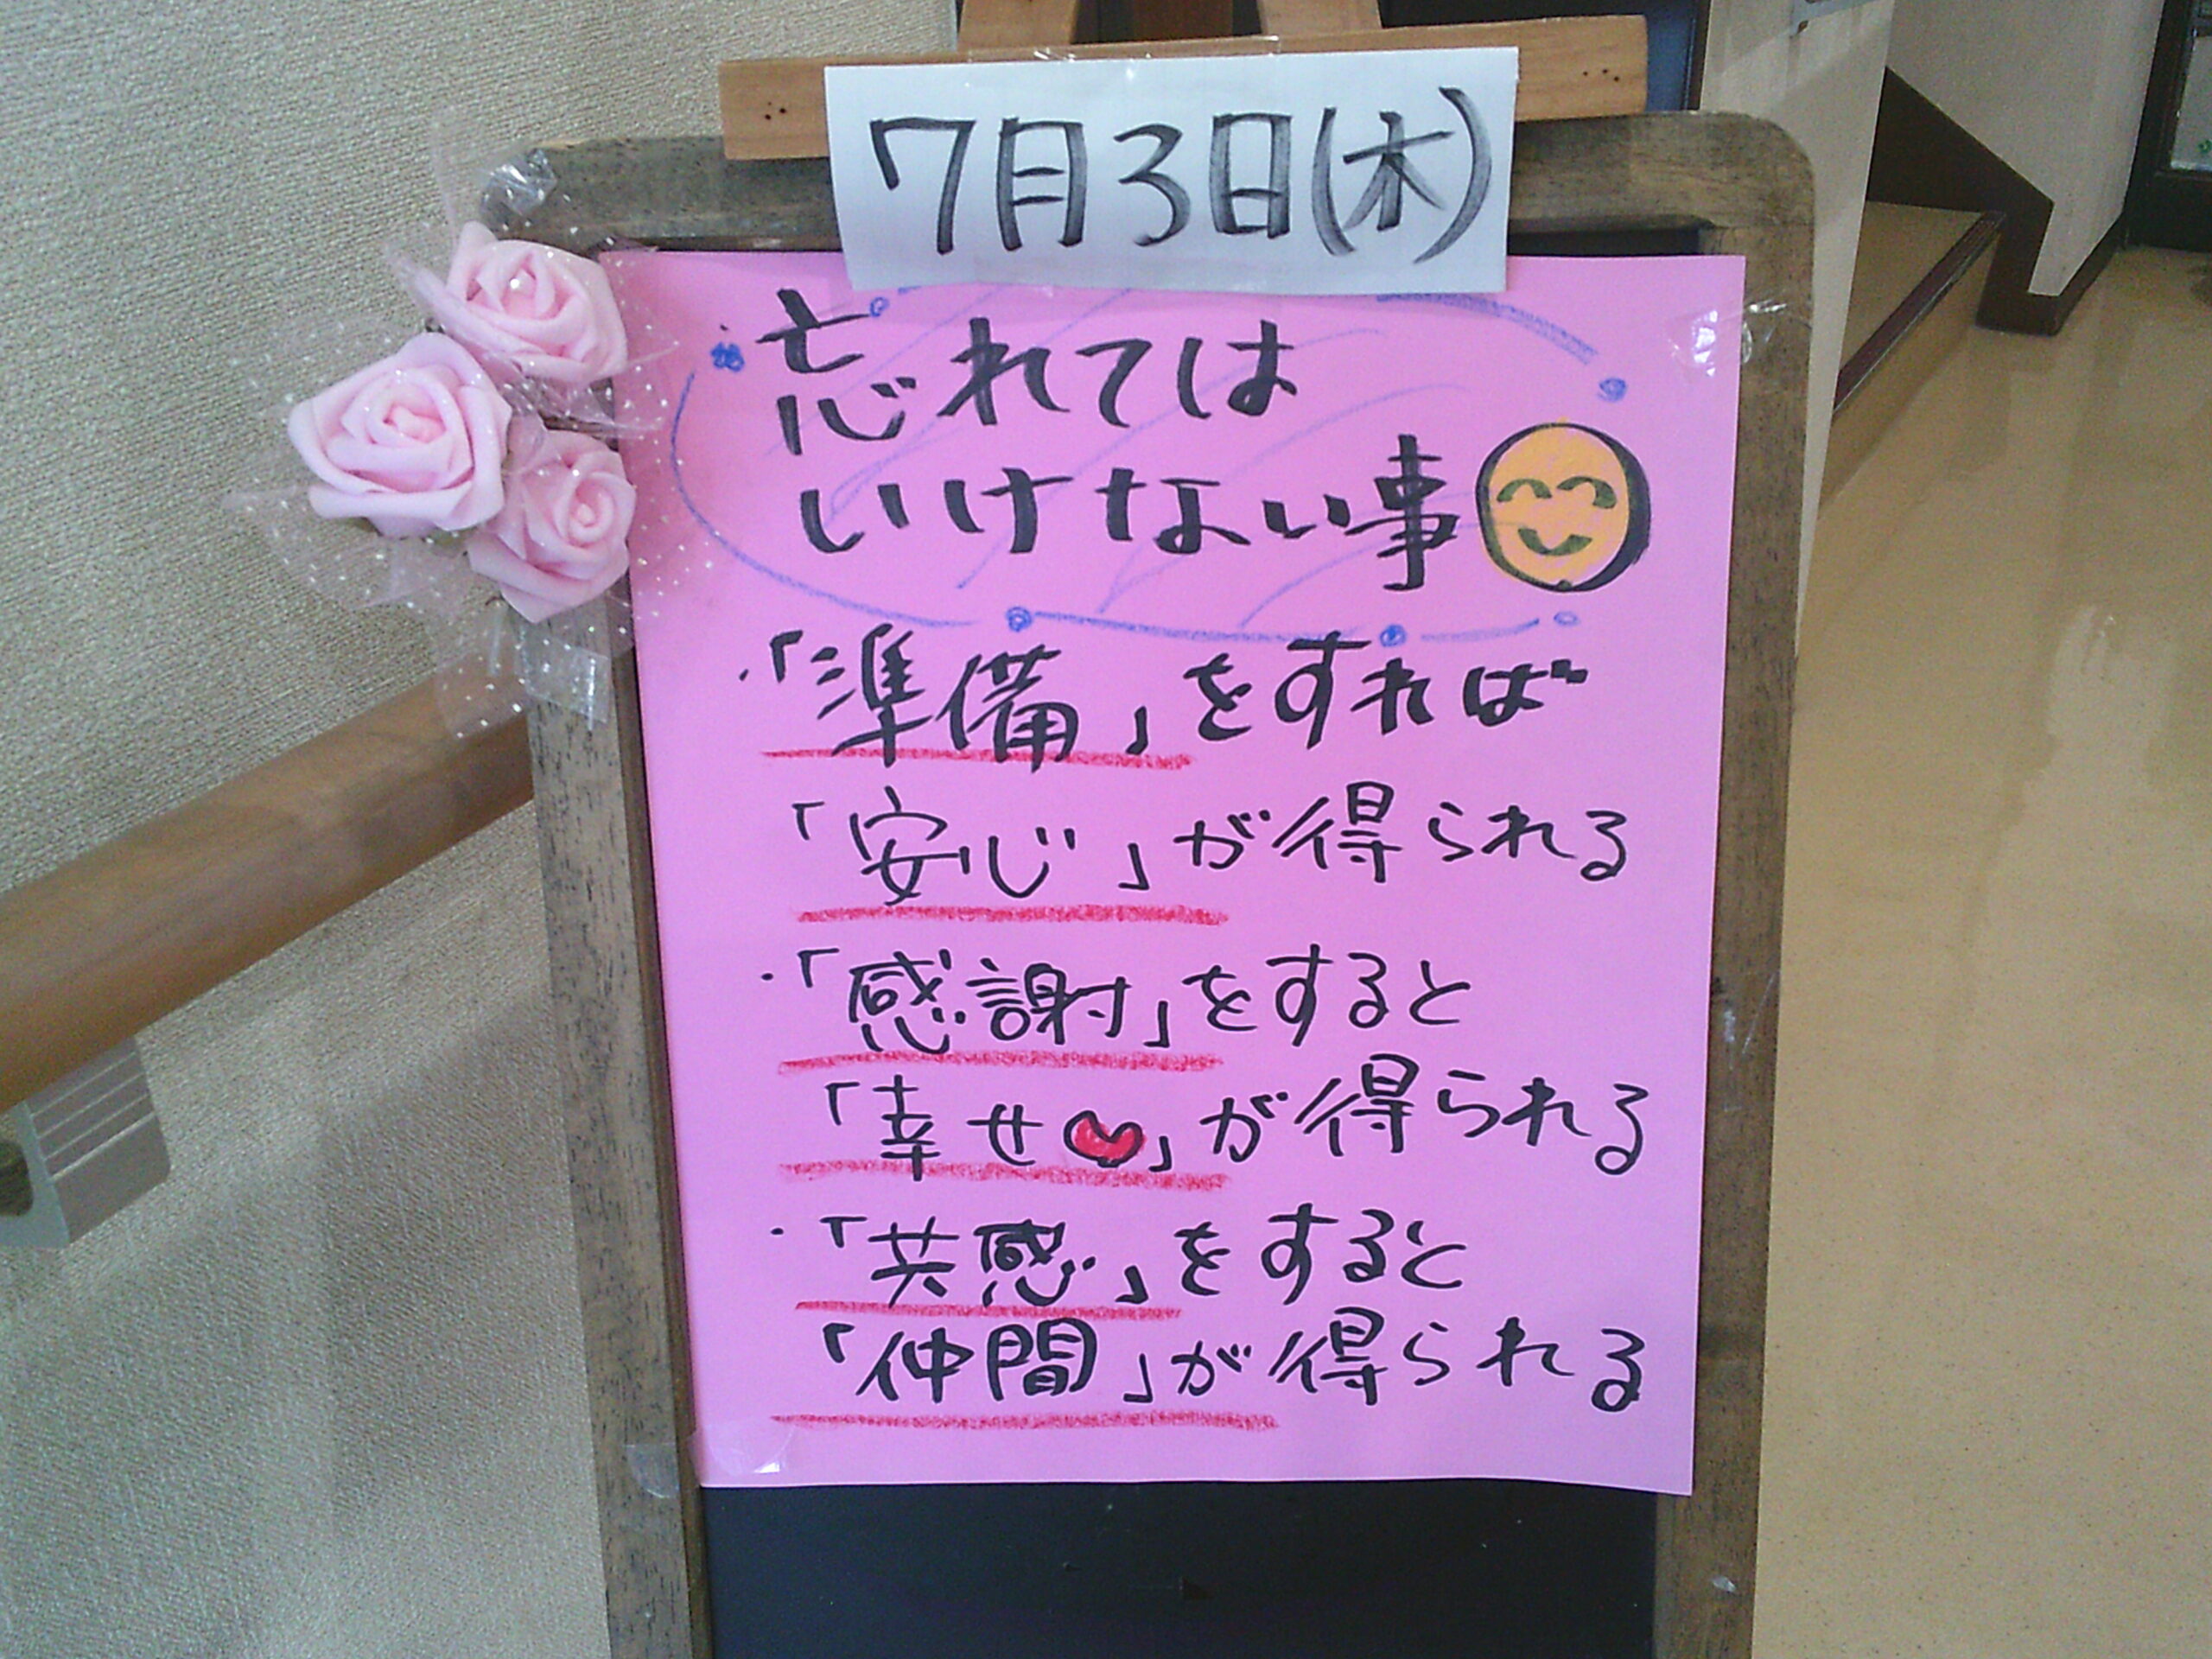 7月3日(木)
忘れては
いけない事
・「準備」をすれば
「安心」が得られる
・「感謝」をすると
「幸せ」が得られる
・「共感」をすると
「仲間」が得られる